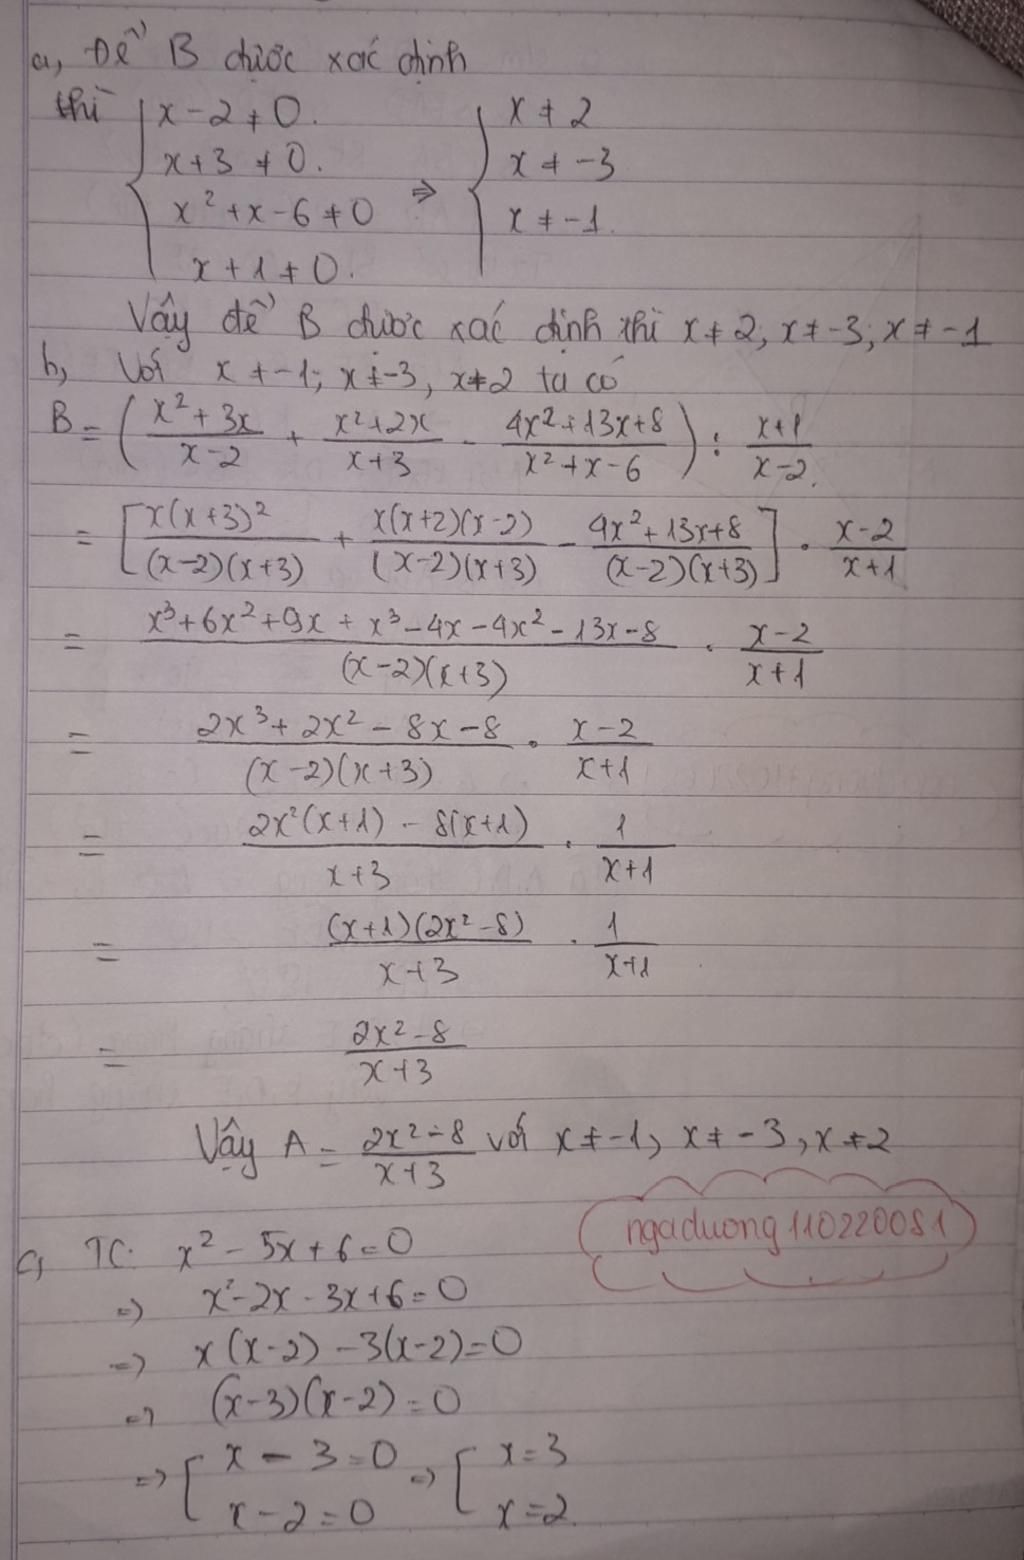 a, Để B được xác định
thì { x - 2 ≠ 0. x + 3 ≠ 0. x² + x - 6 ≠ 0 x + 1 ≠ 0. ⇒ { x ≠ 2 x ≠ -3 x ≠ -1.
Vậy để B được xác định thì x ≠ 2; x ≠ -3; x ≠ -1
b, Với x ≠ -1; x ≠ -3, x ≠ 2 ta có
B = ( (x² + 3x)/(x - 2) + (x² + 2x)/(x + 3) - (4x² + 13x + 8)/(x² + x - 6) ) : (x + 1)/(x - 2).
= [ x(x + 3)²/((x - 2)(x + 3)) + x(x + 2)(x - 2)/((x - 2)(x + 3)) - (4x² + 13x + 8)/((x - 2)(x + 3)) ] . (x - 2)/(x + 1)
= (x³ + 6x² + 9x + x³ - 4x - 4x² - 13x - 8)/((x - 2)(x + 3)) . (x - 2)/(x + 1)
= (2x³ + 2x² - 8x - 8)/((x - 2)(x + 3)) . (x - 2)/(x + 1)
= (2x²(x + 1) - 8(x + 1))/(x + 3) . 1/(x + 1)
= (x + 1)(2x² - 8)/(x + 3) . 1/(x + 1)
= (2x² - 8)/(x + 3)
Vậy A = (2x² - 8)/(x + 3) với x ≠ -1, x ≠ -3, x ≠ 2
ngaduong110220081
c, TC: x² - 5x + 6 = 0
⇒ x² - 2x - 3x + 6 = 0
⇒ x(x - 2) - 3(x - 2) = 0
⇒ (x - 3)(x - 2) = 0
⇒ [ x - 3 = 0 x - 2 = 0 ⇒ [ x = 3 x = 2.